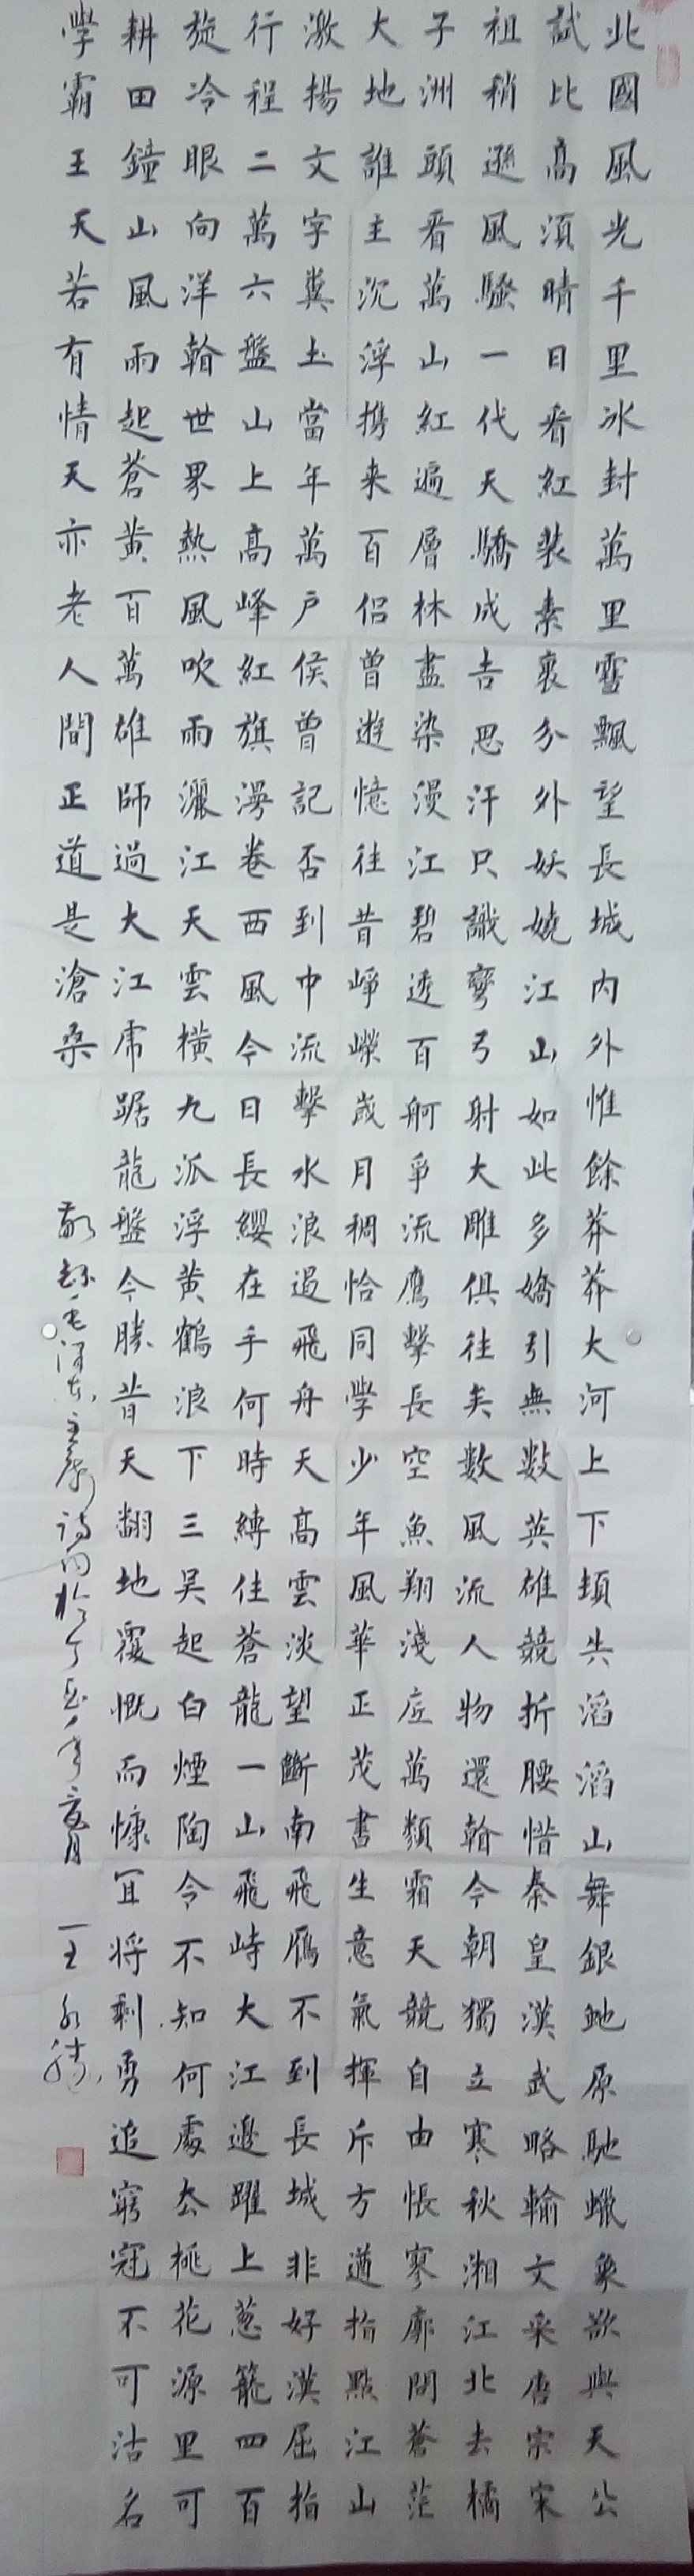 北國風光千里冰封萬里雪飄望長城內外惟餘莽莽大河上下頓失滔滔山舞銀蛇原馳蠟象欲與天公
試比高須晴日看紅裝素裹分外妖嬈江山如此多嬌引無數英雄競折腰惜秦皇漢武略輸文采唐宗宋
祖稍遜風騷一代天驕成吉思汗只識彎弓射大雕俱往矣數風流人物還翰今朝獨立寒秋湘江北去橘
子洲頭看萬山紅遍層林盡染漫江碧透百舸爭流鷹擊長空魚翔淺底萬類霜天競自由悵寥廓問蒼茫
大地誰主沉浮携来百侶曾遊憶往昔崢嶸歲月稠恰同學少年風華正茂書生意氣揮斥方遒指點江山
激揚文字糞土當年萬户侯曾記否到中流擊水浪遏飛舟天高雲淡望斷南飛雁不到長城非好漢屈指
行程二萬六盤山上高峰紅旗漫卷西風今日長纓在手何時縛住蒼龍一山飛峙大江邊躍上葱蘢四百
旋冷眼向洋翰世界熱風吹雨灑江天雲橫九派浮黄鶴浪下三吴起白煙陶令不知何處去桃花源里可
耕田鐘山風雨起蒼黄百萬雄師過大江虎踞龍盤今勝昔天翻地覆慨而慷宜将剩勇追窮寇不可沽名
學霸王天若有情天亦老人間正道是滄桑
毛澤東主席詩詞於